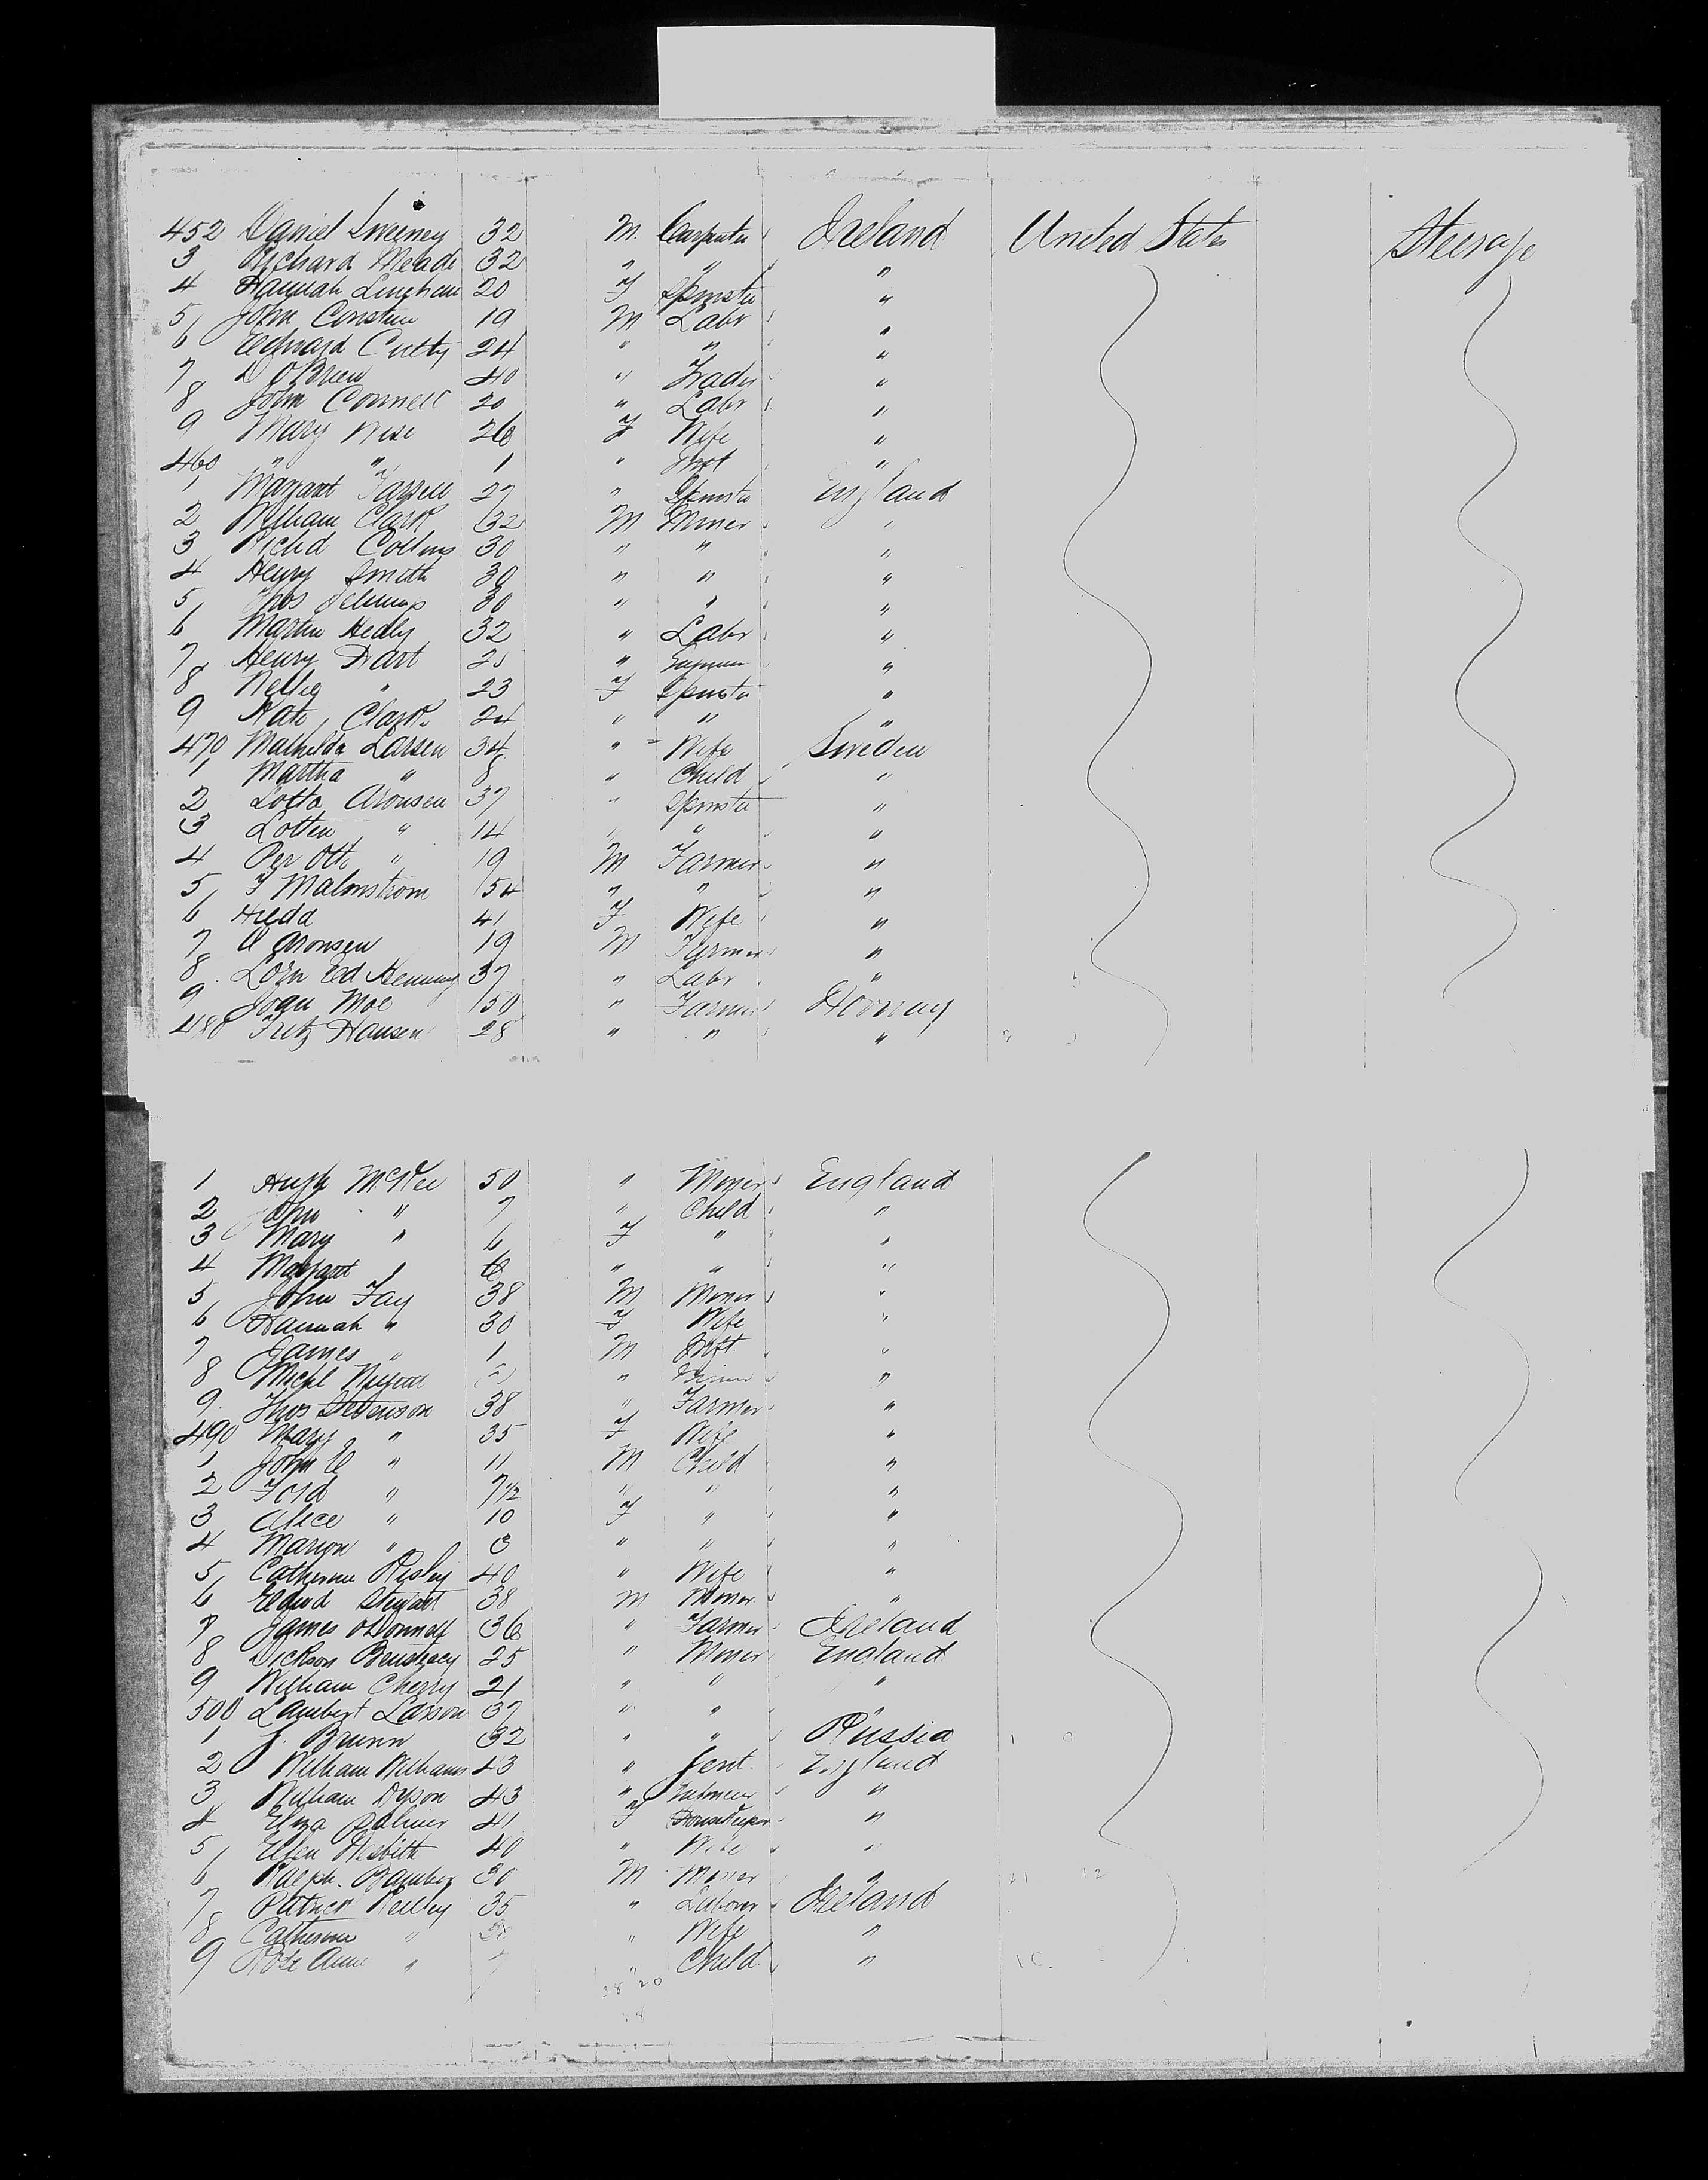 452 Daniel Sweeney 32 M. Carpenter Ireland United States Steerage
3 Richard Meade 32 " " "
4 Hannah Linehan 20 F Spinster "
5 John 19 M Labr "
6 Edward 24 " " "
7 D O'Brien 40 " Trader "
8 John Connell 20 " Labr "
9 Mary Wise 26 F Wife "
460 " " 1 " Inft "
1 Margaret Farrell 27 " Spinster England
2 William Clark 32 M Miner "
3 Richd Collins 30 " " "
4 Henry Smith 30 " " "
5 Thos 30 " " "
6 Martin Healy 32 " Labr "
7 Henry Hart " "
8 Nellie " 23 F Spinster "
9 Kate Clark 24 " " "
470 Mathilda Larsen 34 " Wife Sweden
1 Martha " 8 " Child "
2 Lotta Aronsen 37 " Spinster "
3 Lotten " 14 " " "
4 Per Otto " 19 M Farmer "
5 F Malmstrom 54 " " "
6 Hedd 41 F Wife "
7 A Aronsen 19 M Farmer "
8 Ed Henning 37 " Labr "
9 Moe 50 " Farmer Norway
480 Fritz Hansen 28 " " "
1 Hugh 50 " Miner England
2 John " 7 " Child "
3 Mary " 6 F " "
4 Margaret " " " "
5 John Fay 38 M Miner "
6 Hannah " 30 F Wife "
7 James " 1 M Inft. "
8 Michl " "
9 Thos Stevenson 38 " Farmer "
490 Mary " 35 F Wife "
1 John E " 11 M Child "
2 Ford " 7 1/2 " " "
3 Alice " 10 F " "
4 Marion " 3 " " "
5 Catherine Risley 40 " Wife "
6 Edwd Stewart 38 M Miner "
7 James O'Donnell 36 " Farmer Ireland
8 Dickson 25 " Miner England
9 William Cherry 21 " " "
500 Lambert Larson 37 " " "
1 J. Brunn 32 " " Russia
2 William Williams 43 " Gent. England
3 William Dyson 43 " "
4 Eliza Palmer 41 F Housekeeper "
5 Ellen Nesbith 40 " Wife "
6 Ralph Bamber 30 M Miner "
7 Patrick Reilley 35 " Labour Ireland
8 Catherine " " Wife "
9 Rose Anne " 7 " Child "